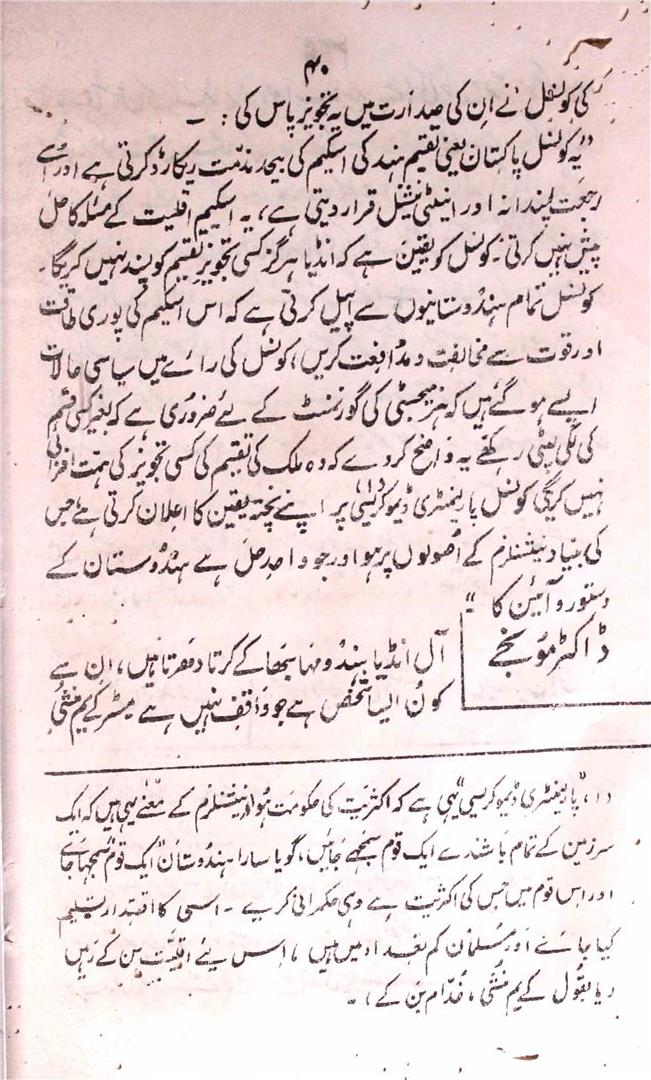 ۴۰
کی کونسل نے ان کی صدارت میں یہ تجویز پاس کی : ۔
"یہ کونسل پاکستان یعنی تقسیم ہند کی اسکیم کی بیحد مذمت ریکارڈ کرتی ہے اور اسے
رجعت پسندانہ اور اینٹی نیشنل قرار دیتی ہے، یہ اسکیم اقلیت کے مسئلہ کا حل
پیش نہیں کرتی۔ کونسل کو یقین ہے کہ انڈیا ہرگز کسی تجویز تقسیم کو پسند نہیں کریگا۔
کونسل تمام ہندوستانیوں سے اپیل کرتی ہے کہ اس اسکیم کی پوری طاقت
اور قوت سے مخالفت و مدافعت کریں، کونسل کی رائے میں سیاسی حالات
ایسے ہو گئے ہیں کہ ہز میجسٹی کی گورنمنٹ کے لئے ضروری ہے کہ بغیر کسی قسم
کی لگی لپٹی رکھے یہ واضح کر دے کہ وہ ملک کی تقسیم کی کسی تجویز کی ہمت افزائی
نہیں کریگی کونسل پارلیمنٹری ڈیموکریسی(۱) پر اپنے پختہ یقین کا اعلان کرتی ہے جس
کی بنیاد نیشنلزم کے اصولوں پر ہو اور جو واحد حل ہے ہندوستان کے
دستور و آئین کا"
ڈاکٹر مونجے
آل انڈیا ہندو مہا سبھا کے کرتا دھرتا ہیں، ان سے
کون ایسا شخص ہے جو واقف نہیں ہے مسٹر کے یم منشی
(۱) "پارلیمنٹری ڈیموکریسی" یہی ہے کہ اکثریت کی حکومت ہو اور نیشنلزم کے معنے یہی ہیں کہ ایک
سرزمین کے تمام باشندے ایک قوم سمجھے جائیں، گویا سارا ہندوستان "ایک قوم" سمجھا جائے
اور اس قوم میں جس کی اکثریت ہے وہی حکمرانی کرے ۔ اسی کا اقتدار تسلیم
کیا جائے اور مسلمان کم تعداد میں ہیں، اس لئے اقلیت بن کے رہیں
(یا بقول کے یم منشی، خدام بن کے)۔